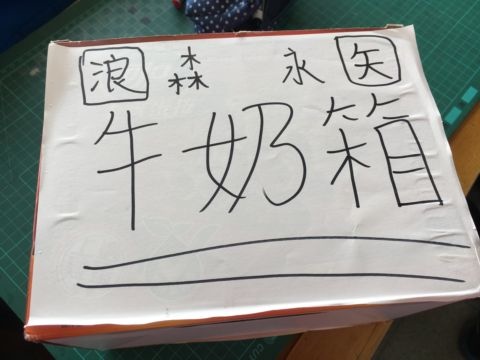 浪 森 永 矢
牛奶箱